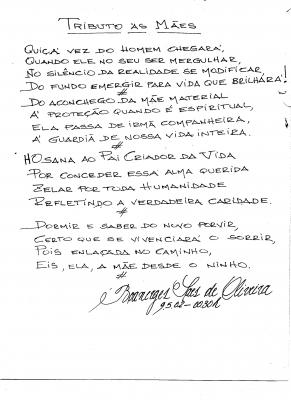 TRIBUTO ÀS MÃES
QUIÇÁ VEZ DO HOMEM CHEGARÁ,
QUANDO ELE NO SEU SER MERGULHAR,
NO SILÊNCIO DA REALIDADE SE MODIFICAR,
DO FUNDO EMERGIR PARA VIDA QUE BRILHARÁ!
#
DO ACONCHEGO DA MÃE MATERIAL
À PROTEÇÃO QUANDO É ESPIRITUAL,
ELA PASSA DE IRMÃ COMPANHEIRA,
À GUARDIÃ DE NOSSA VIDA INTEIRA.
#
HOSANA AO PAI CRIADOR DA VIDA
POR CONCEDER ESSA ALMA QUERIDA
ZELAR POR TODA HUMANIDADE
REFLETINDO A VERDADEIRA CARIDADE.
#
DORMIR E SABER DO NOVO PORVIR,
CERTO QUE SE VIVENCIARÁ O SORRIR,
POIS ENLAÇADA NO CAMINHO,
EIS, ELA, A MÃE DESDE O NINHO.
#
de Oliveira